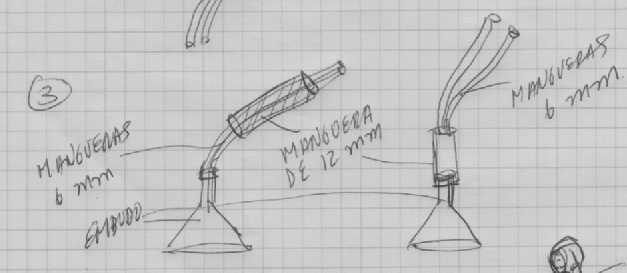 3
MANGUERAS
6 mm
EMBUDO
MANGUERA
DE 12 mm
MANGUERAS
6 mm.